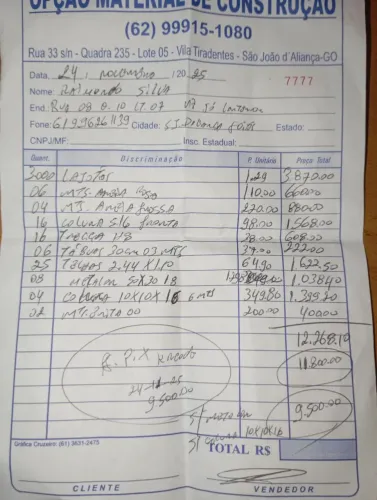 OPÇÃO MATERIAL DE CONSTRUÇÃO
(62) 99915-1080
Rua 33 s/n - Quadra 235 - Lote 05 - Vila Tiradentes - São João d'Aliança-GO
Data, 24 / novembro / 20 25 7777
Nome: Raimundo Silva
End.: Rua 08 Q. 10 LT. 07
Fone: Cidade: S.J. Estado:
CNPJ/MF: Insc. Estadual:
Quant. Discriminação P. Unitário Preço Total
3000 Lajotas 1,29 3.870,00
06 MTS. Areia 110,00 660,00
04 MT. Areia grossa 220,00 880,00
16 Coluna 5/16 98,00 1.568,00
16 38,00 608,00
06 Tabuas 30cm 03 MTS 37,00 222,00
25 Telhas 2.44 X 1.10 64,90 1.622,50
08 Metalon 50X30 18 1.038,40
04 Coluna 10X10X 6 mts 349,80 1.399,20
02 200,00 400,00
12.268,10
11.800,00
PIX
24-11-25
9.500,00
9.500,00
S/ Metalon
S/ 10X10X16
TOTAL R$
Gráfica Cruzeiro: (61) 3631-2475
CLIENTE VENDEDOR